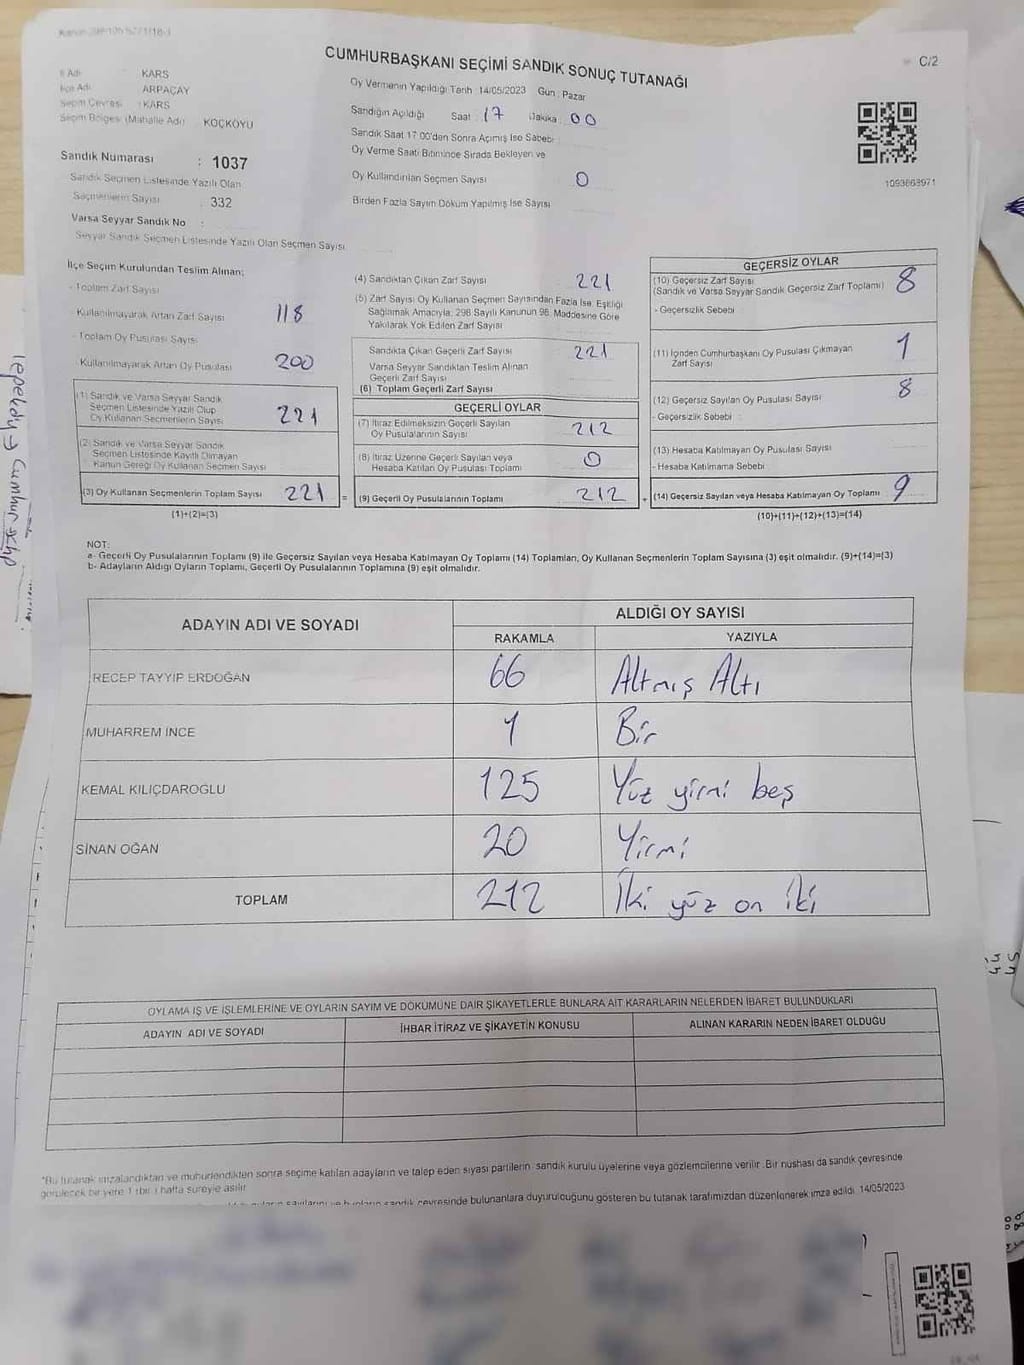 C/2
CUMHURBAŞKANI SEÇİMİ SANDIK SONUÇ TUTANAĞI
İl Adı : KARS
İlçe Adı : ARPAÇAY
Seçim Çevresi : KARS
Seçim Bölgesi (Mahalle Adı) : KOÇKÖYÜ
Sandık Numarası : 1037
Sandık Seçmen Listesinde Yazılı Olan
Seçmenlerin Sayısı : 332
Varsa Seyyar Sandık No :
Seyyar Sandık Seçmen Listesinde Yazılı Olan Seçmen Sayısı
Oy Vermenin Yapıldığı Tarih 14/05/2023 Gün : Pazar
Sandığın Açıldığı Saat : 17 Dakika : 00
Sandık Saat 17:00'den Sonra Açılmış İse Sebebi :
Oy Verme Saati Bitiminde Sırada Bekleyen ve
Oy Kullandırılan Seçmen Sayısı 0
Birden Fazla Sayım Döküm Yapılmış İse Sayısı
1093668971
İlçe Seçim Kurulundan Teslim Alınan;
- Toplam Zarf Sayısı
- Kullanılmayarak Artan Zarf Sayısı 118
- Toplam Oy Pusulası Sayısı
- Kullanılmayarak Artan Oy Pusulası 200
(1) Sandık ve Varsa Seyyar Sandık
Seçmen Listesinde Yazılı Olup
Oy Kullanan Seçmenlerin Sayısı 221
(2) Sandık ve Varsa Seyyar Sandık
Seçmen Listesinde Kayıtlı Olmayan
Kanun Gereği Oy Kullanan Seçmen Sayısı
(3) Oy Kullanan Seçmenlerin Toplam Sayısı 221 =
(1)+(2)=(3)
(4) Sandıktan Çıkan Zarf Sayısı 221
(5) Zarf Sayısı Oy Kullanan Seçmen Sayısından Fazla İse, Eşitliği
Sağlamak Amacıyla, 298 Sayılı Kanunun 98. Maddesine Göre
Yakılarak Yok Edilen Zarf Sayısı
Sandıkta Çıkan Geçerli Zarf Sayısı 221
Varsa Seyyar Sandıktan Teslim Alınan
Geçerli Zarf Sayısı
(6) Toplam Geçerli Zarf Sayısı
GEÇERLİ OYLAR
(7) İtiraz Edilmeksizin Geçerli Sayılan
Oy Pusulalarının Sayısı 212
(8) İtiraz Üzerine Geçerli Sayılan veya
Hesaba Katılan Oy Pusulası Toplamı 0
(9) Geçerli Oy Pusulalarının Toplamı 212 +
GEÇERSİZ OYLAR
(10) Geçersiz Zarf Sayısı
(Sandık ve Varsa Seyyar Sandık Geçersiz Zarf Toplamı) 8
- Geçersizlik Sebebi
(11) İçinden Cumhurbaşkanı Oy Pusulası Çıkmayan
Zarf Sayısı 1
(12) Geçersiz Sayılan Oy Pusulası Sayısı 8
- Geçersizlik Sebebi :
(13) Hesaba Katılmayan Oy Pusulası Sayısı
- Hesaba Katılmama Sebebi
(14) Geçersiz Sayılan veya Hesaba Katılmayan Oy Toplamı 9
(10)+(11)+(12)+(13)=(14)
NOT:
a- Geçerli Oy Pusulalarının Toplamı (9) ile Geçersiz Sayılan veya Hesaba Katılmayan Oy Toplamı (14) Toplamları, Oy Kullanan Seçmenlerin Toplam Sayısına (3) eşit olmalıdır. (9)+(14)=(3)
b- Adayların Aldığı Oyların Toplamı, Geçerli Oy Pusulalarının Toplamına (9) eşit olmalıdır.
ADAYIN ADI VE SOYADI ALDIĞI OY SAYISI
RAKAMLA YAZIYLA
RECEP TAYYİP ERDOĞAN 66 Altmış Altı
MUHARREM İNCE 1 Bir
KEMAL KILIÇDAROĞLU 125 Yüz yirmi beş
SİNAN OĞAN 20 Yirmi
TOPLAM 212 İki yüz on iki
OYLAMA İŞ VE İŞLEMLERİNE VE OYLARIN SAYIM VE DÖKÜMÜNE DAİR ŞİKAYETLERLE BUNLARA AİT KARARLARIN NELERDEN İBARET BULUNDUKLARI
ADAYIN ADI VE SOYADI İHBAR İTİRAZ VE ŞİKAYETİN KONUSU ALINAN KARARIN NEDEN İBARET OLDUĞU
*Bu tutanak imzalandıktan ve mühürlendikten sonra seçime katılan adayların ve talep eden siyasi partilerin, sandık kurulu üyelerine veya gözlemcilerine verilir. Bir nüshası da sandık çevresinde
görülecek bir yere 1 (bir) hafta süreyle asılır.
sandık çevresinde bulunanlara duyurulduğunu gösteren bu tutanak tarafımızdan düzenlenerek imza edildi. 14/05/2023